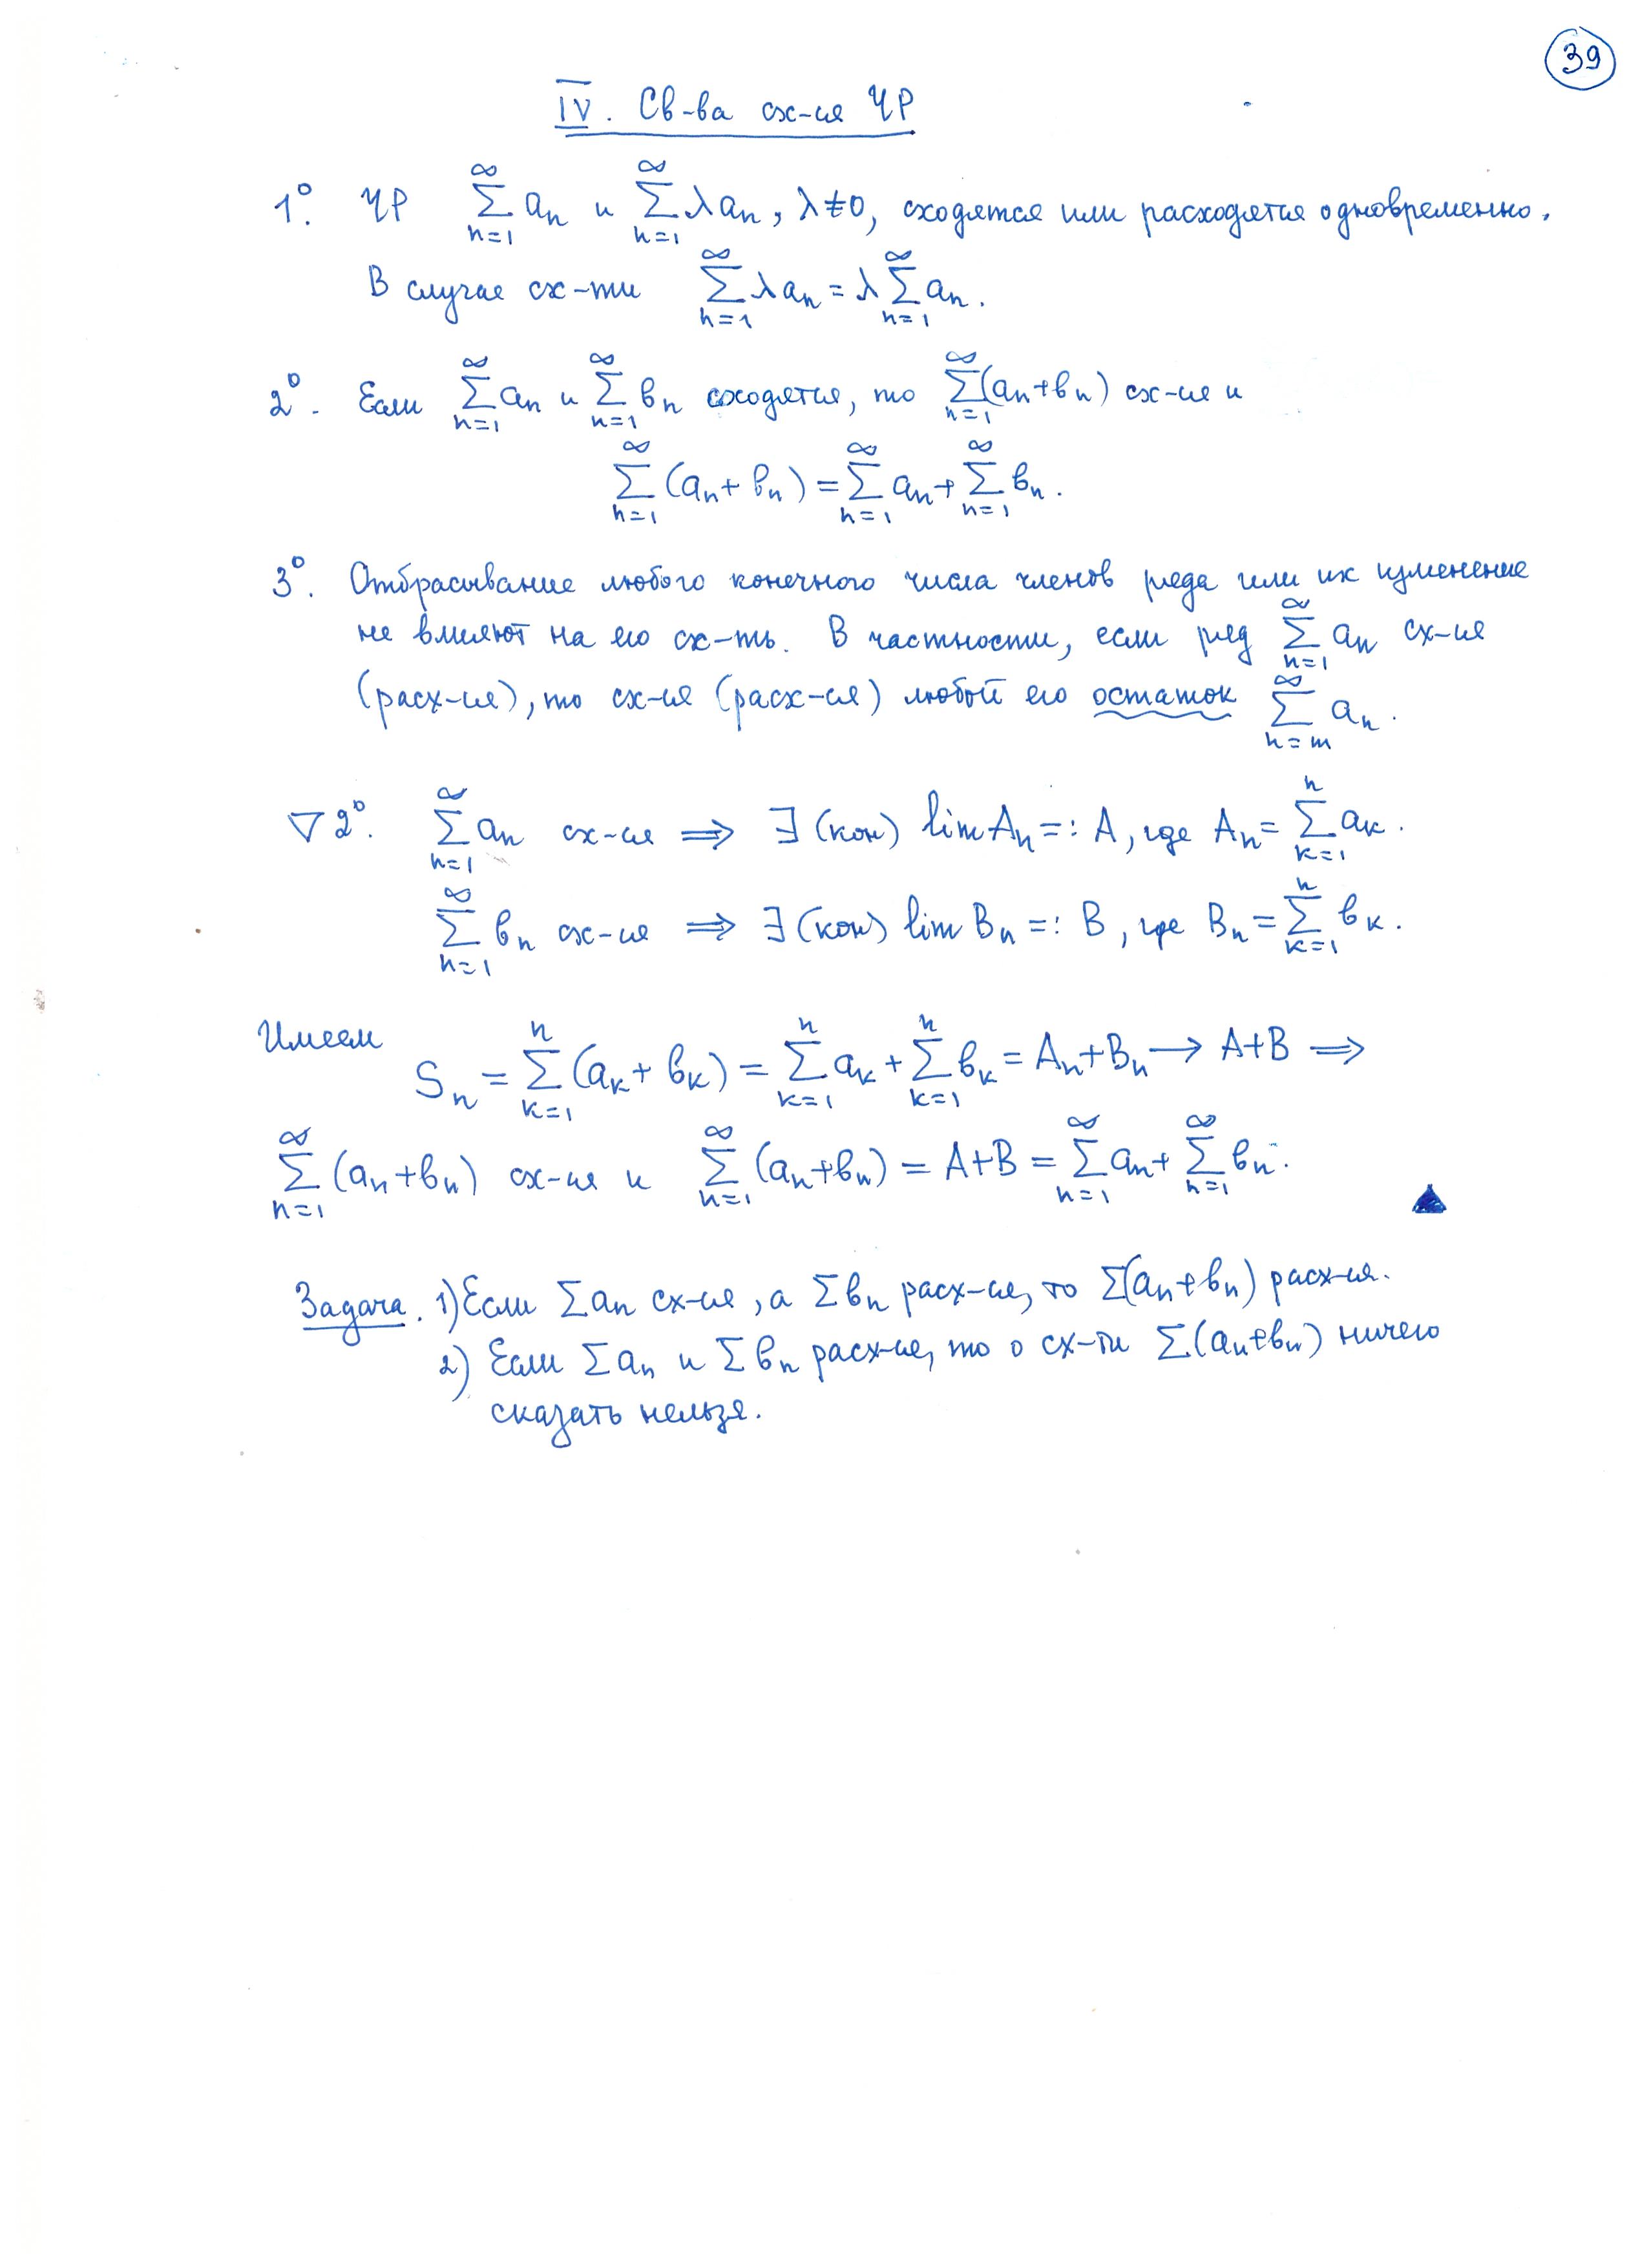 39
IV. Св-ва сх-ся ЧР
1°. ЧР $\sum_{n=1}^{\infty} a_n$ и $\sum_{n=1}^{\infty} \lambda a_n$, $\lambda \neq 0$, сходятся или расходятся одновременно.
В случае сх-ти $\sum_{n=1}^{\infty} \lambda a_n = \lambda \sum_{n=1}^{\infty} a_n$.
2°. Если $\sum_{n=1}^{\infty} a_n$ и $\sum_{n=1}^{\infty} b_n$ сходятся, то $\sum_{n=1}^{\infty} (a_n + b_n)$ сх-ся и
$\sum_{n=1}^{\infty} (a_n + b_n) = \sum_{n=1}^{\infty} a_n + \sum_{n=1}^{\infty} b_n$.
3°. Отбрасывание любого конечного числа членов ряда или их изменение
не влияют на его сх-ть. В частности, если ряд $\sum_{n=1}^{\infty} a_n$ сх-ся
(расх-ся), то сх-ся (расх-ся) любой его остаток $\sum_{n=m}^{\infty} a_n$.
▽ 2°. $\sum_{n=1}^{\infty} a_n$ сх-ся ⟹ ∃ (кон) $\lim A_n =: A$, где $A_n = \sum_{k=1}^{n} a_k$.
$\sum_{n=1}^{\infty} b_n$ сх-ся ⟹ ∃ (кон) $\lim B_n =: B$, где $B_n = \sum_{k=1}^{n} b_k$.
Имеем
$S_n = \sum_{k=1}^{n} (a_k + b_k) = \sum_{k=1}^{n} a_k + \sum_{k=1}^{n} b_k = A_n + B_n \to A + B$ ⟹
$\sum_{n=1}^{\infty} (a_n + b_n)$ сх-ся и $\sum_{n=1}^{\infty} (a_n + b_n) = A + B = \sum_{n=1}^{\infty} a_n + \sum_{n=1}^{\infty} b_n$. ▲
Задача. 1) Если $\sum a_n$ сх-ся, а $\sum b_n$ расх-ся, то $\sum (a_n + b_n)$ расх-ся.
2) Если $\sum a_n$ и $\sum b_n$ расх-ся, то о сх-ти $\sum (a_n + b_n)$ ничего
сказать нельзя.